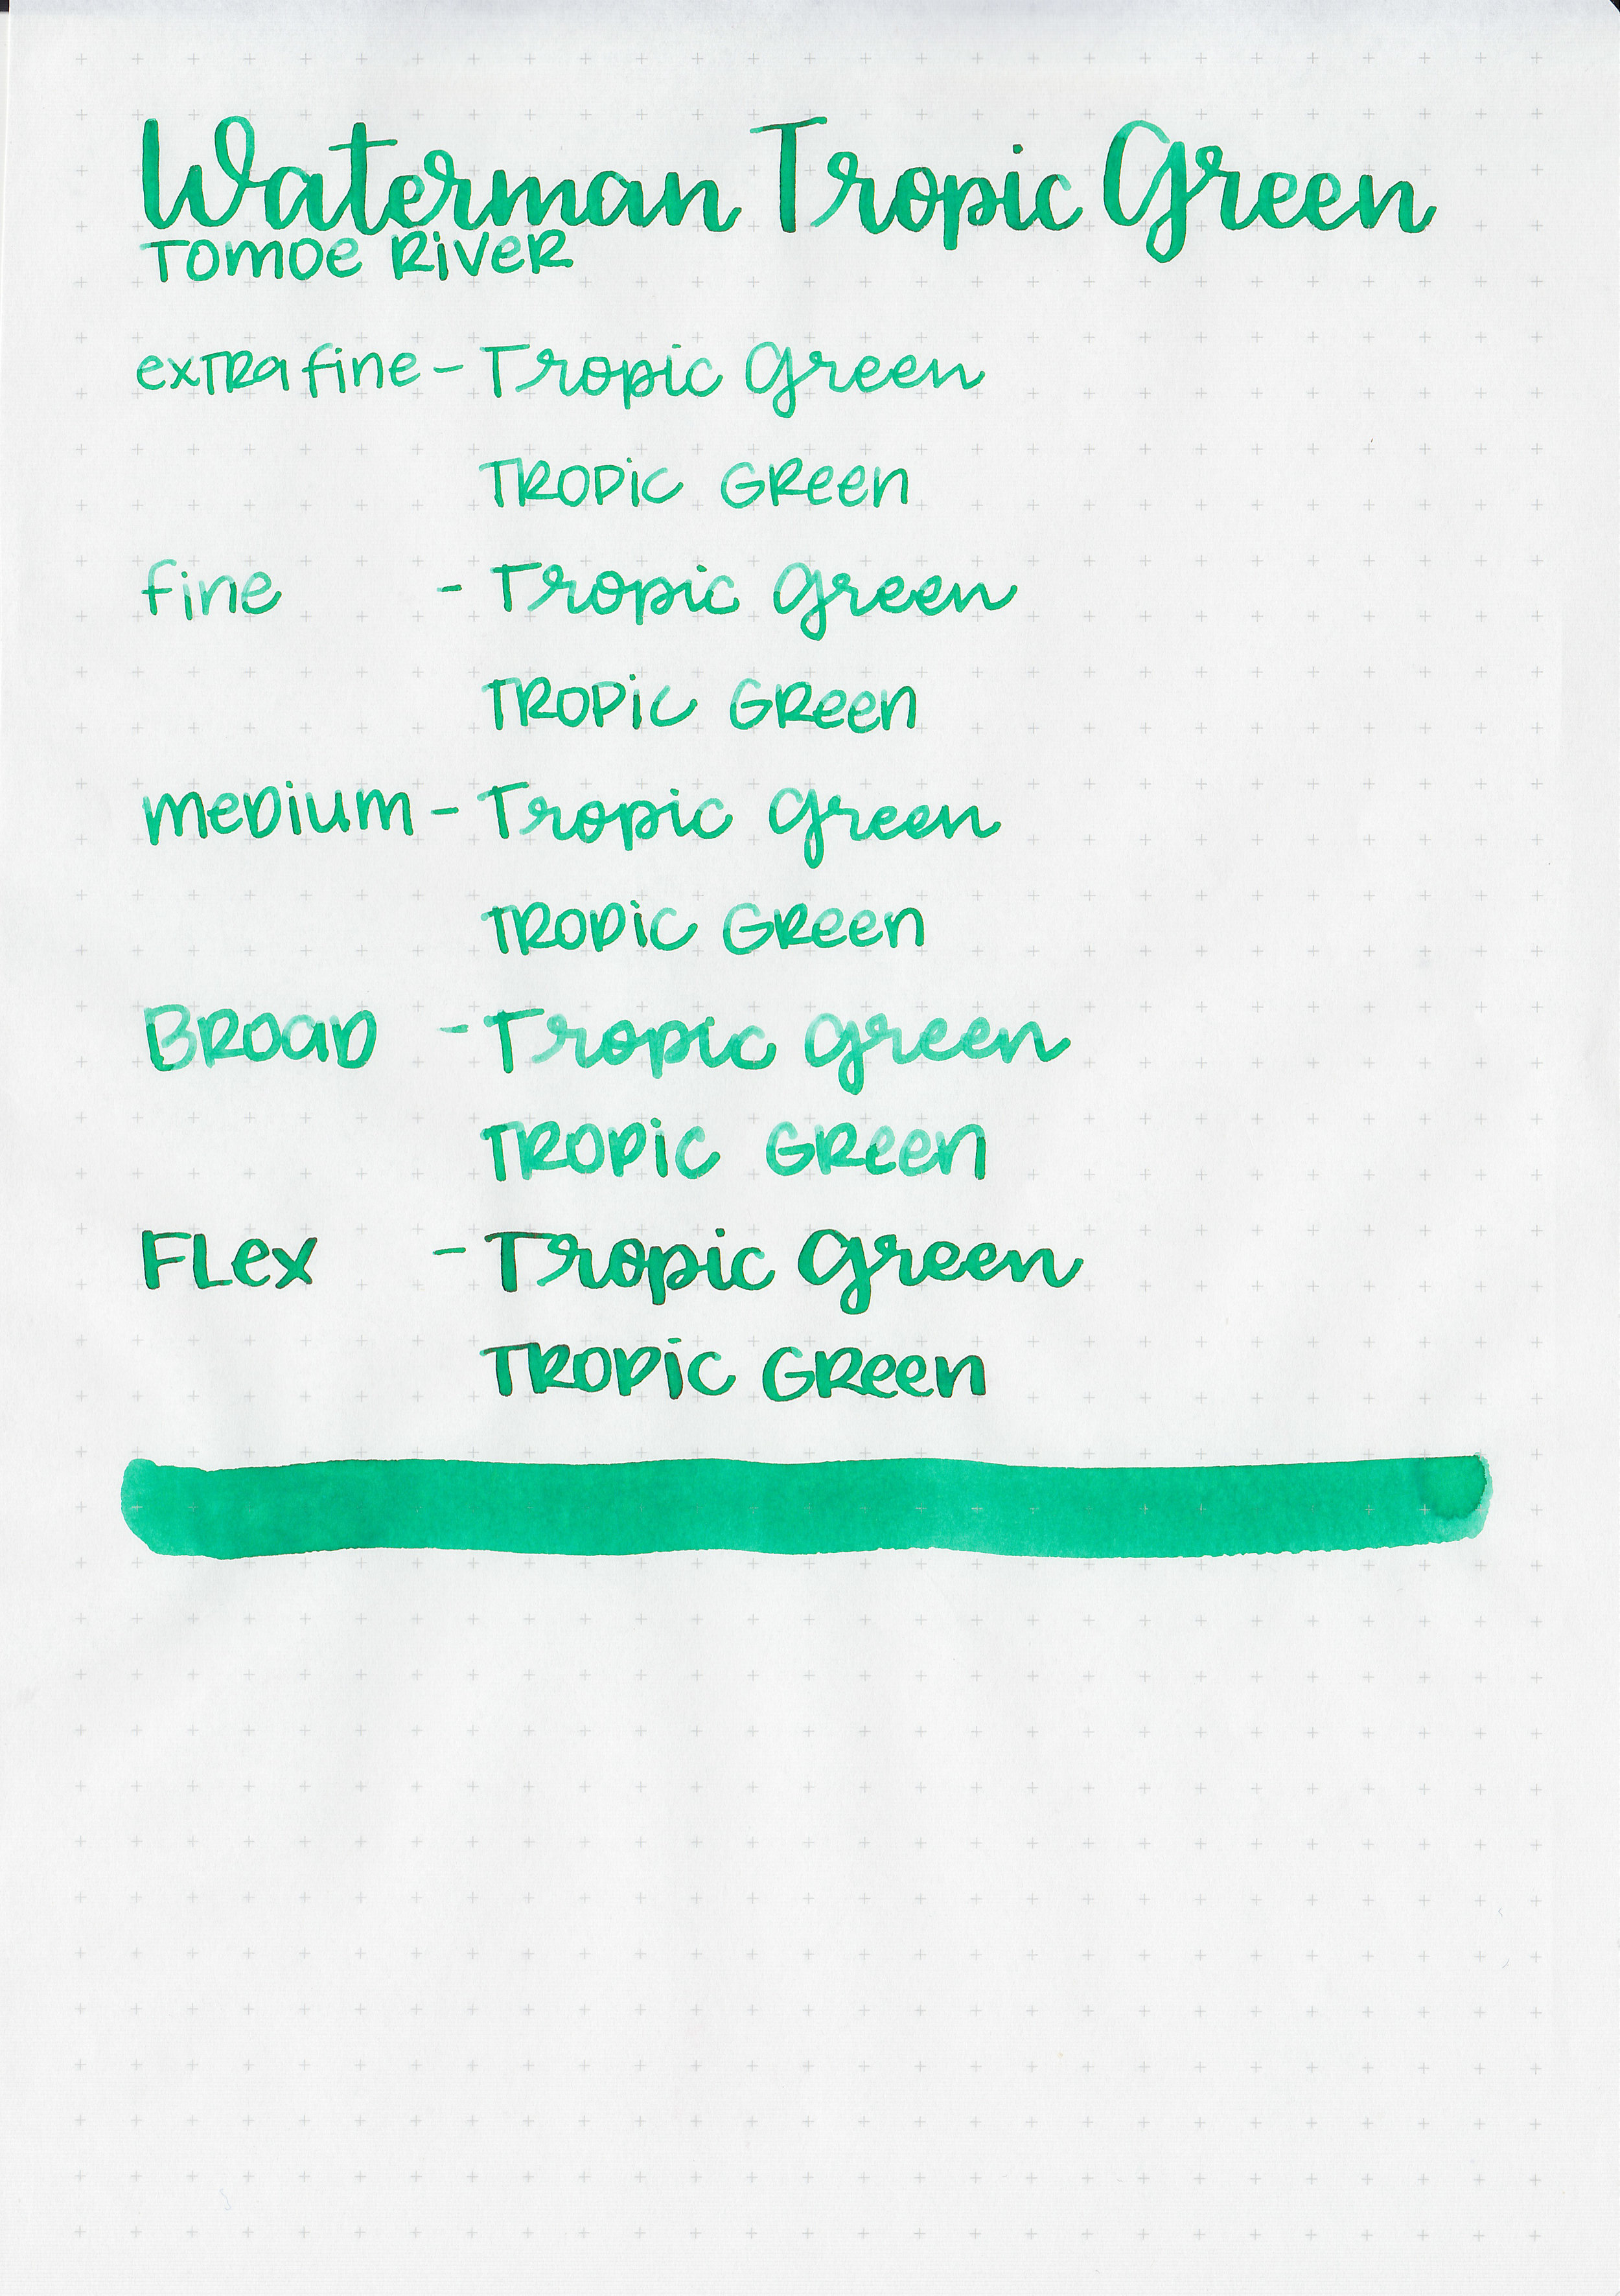 Waterman Tropic Green
TOMOE RiVeR
exTRa fine - Tropic Green
TROPic GReen
fine - Tropic Green
TROPic GReen
meDium - Tropic Green
TROPic GReen
BROaD - Tropic Green
TROPic GReen
FLex - Tropic Green
TROPic GReen